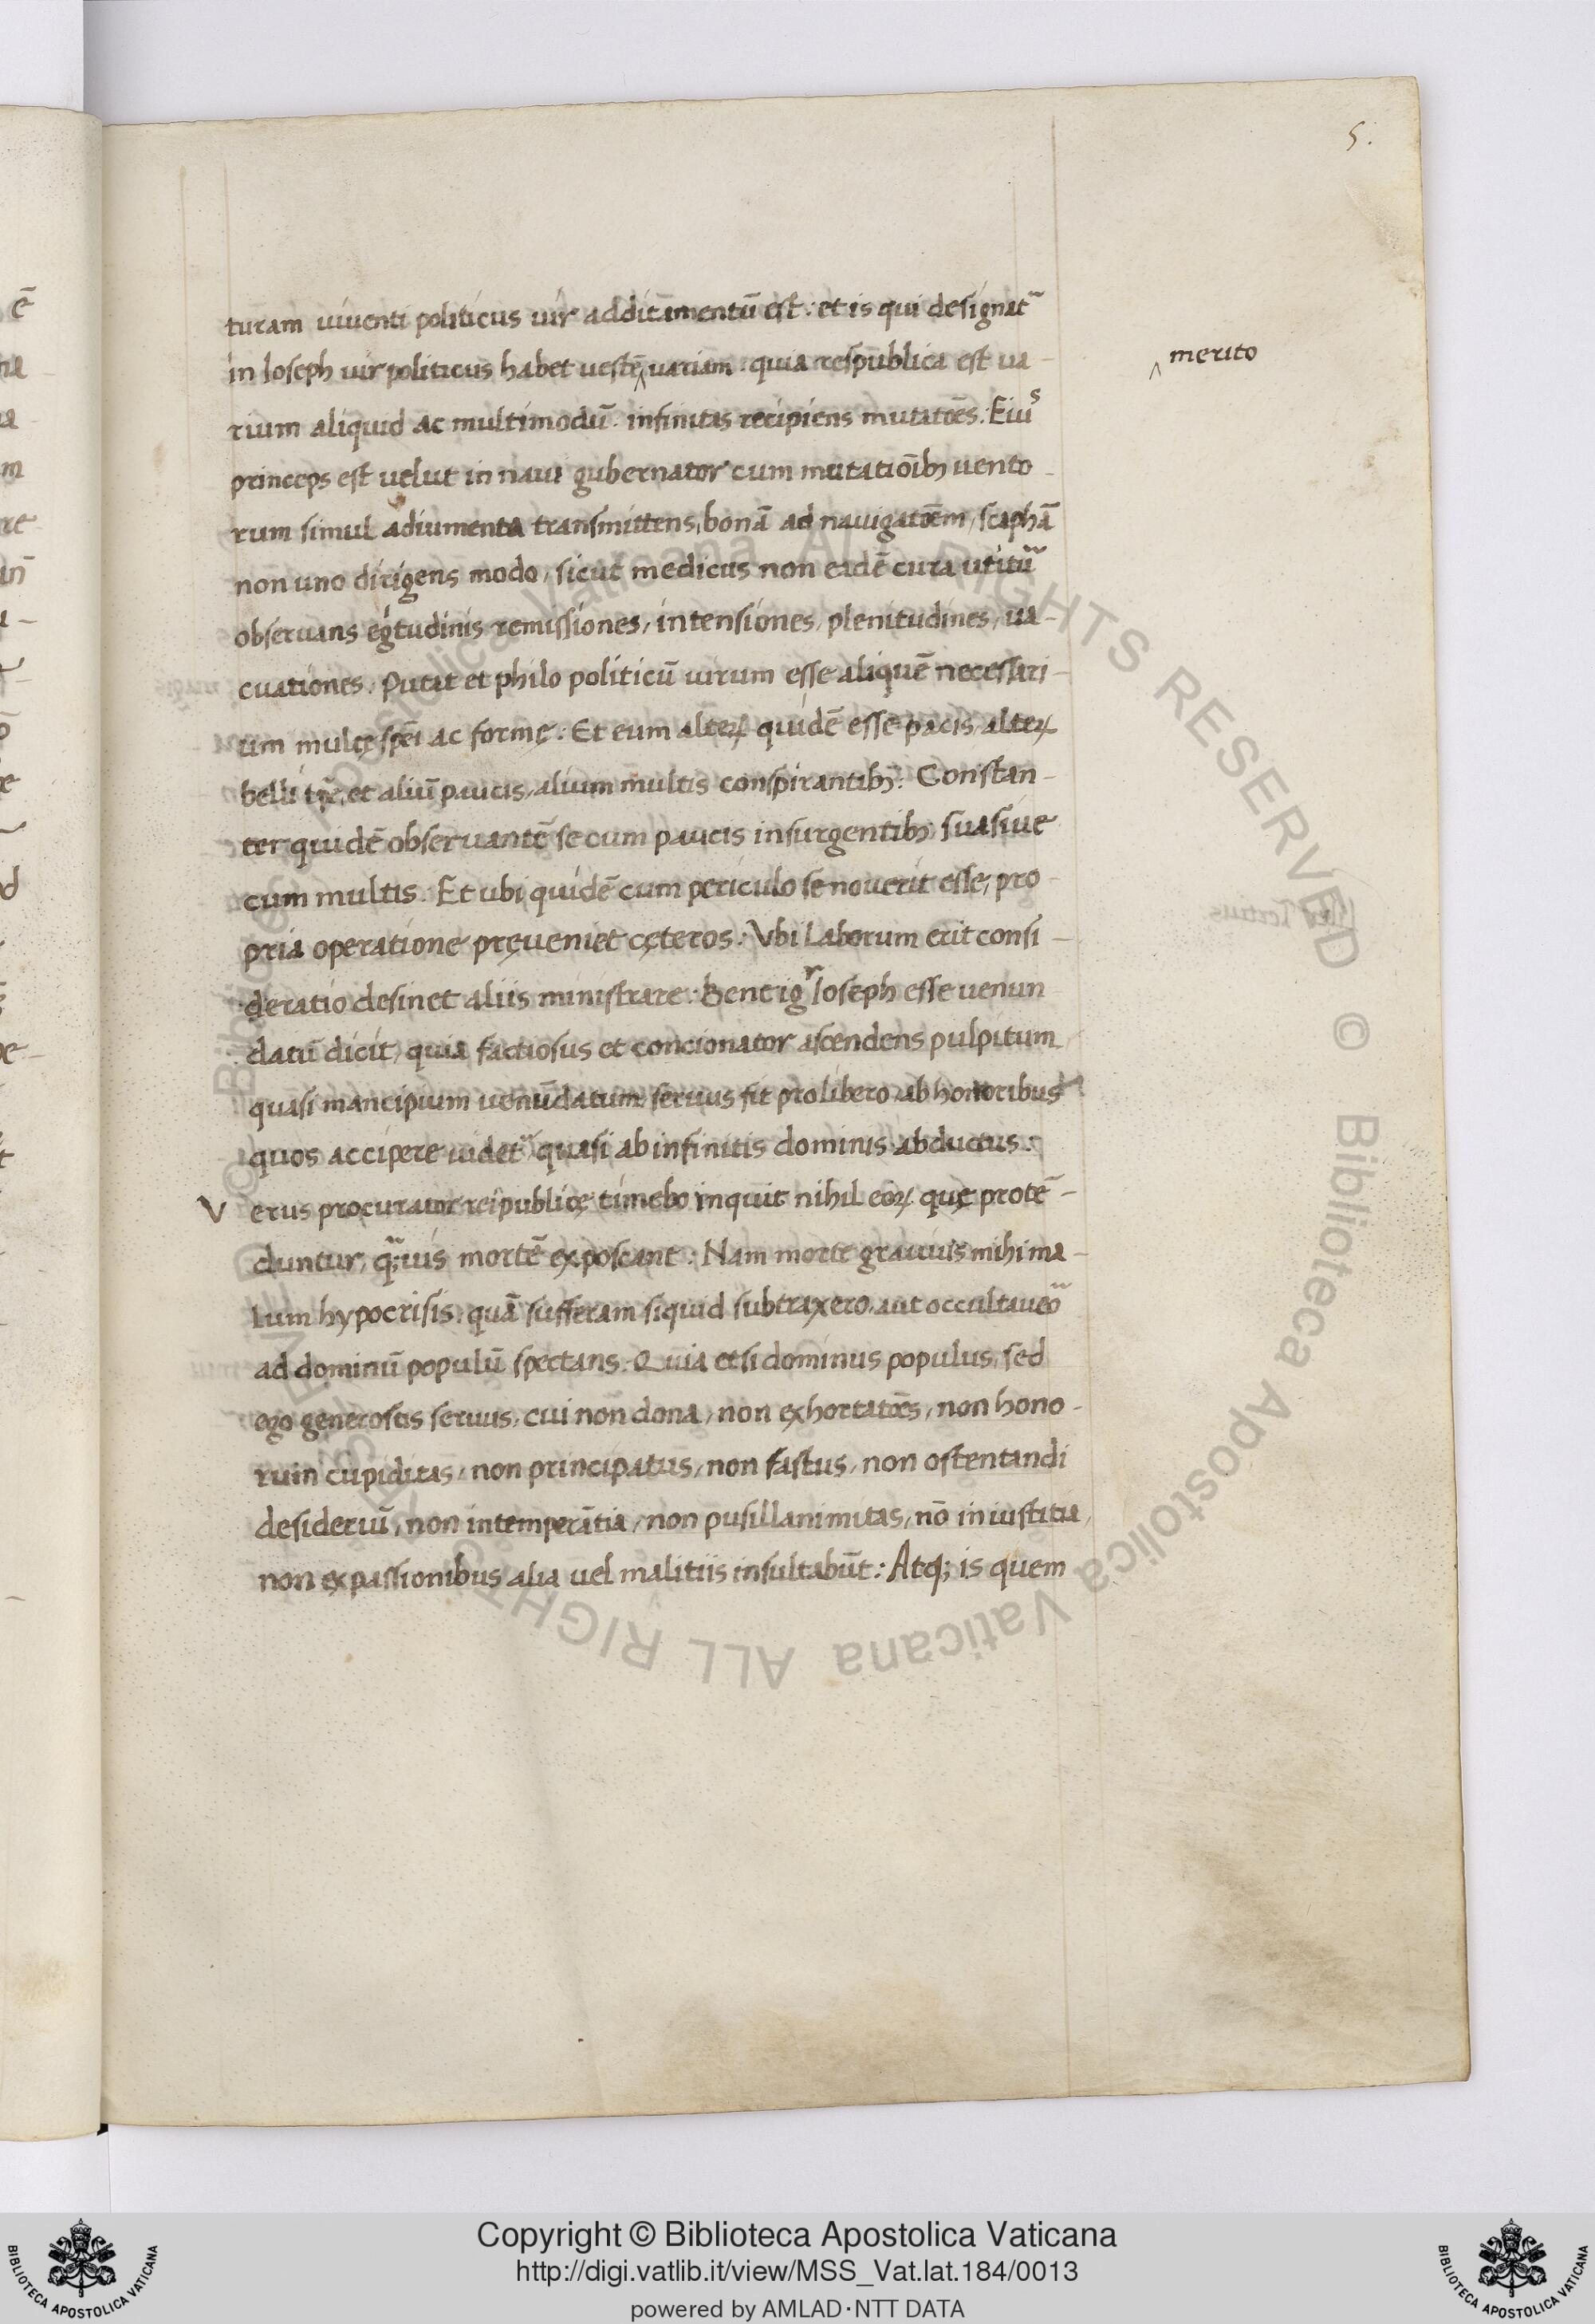 5.
turam viventi politicus vir additamentū est: et is qui designat᷈
in Ioseph vir politicus habet vestē ‸ variam: quia respublica est va-
‸ merito
rium aliquid ac multimodū. infinitas recipiens mutatōes. Eiuˢ
princeps est velut in navi gubernator cum mutatiōibꝫ vento-
rum simul adiumenta transmittens, bonā ad navigatōem, scaphā
non uno dirigens modo, sicut medicus non eadē cura utitu᷈
observans egͥtudinis remissiones, intensiones, plenitudines, va-
cuationes. Putat et philo politicū virum esse aliquē necessari-
um multę spēi ac formę. Et eum alteꝝ quidē esse pacis, alteꝝ
belli tp̄e, et aliū paucis, alium multis conspirantibꝫ. Constan-
ter quidē observantē se cum paucis insurgentibꝫ, suasive
cum multis. Et ubi quidē cum periculo se noverit esse, pro-
pria operatione pręveniet cęteros. Vbi laborum erit consi-
deratio desinet aliis ministrare. Bene igʳ Ioseph esse venun
datū dicit, quia factiosus et concionator ascendens pulpitum
quasi mancipium venūdatum, servus fit pro libero ab honoribus
quos accipere videt᷈ quasi ab infinitis dominis abductus:
Verus procurator reipublicę timebo inquit nihil eoꝝ quę protē-
duntur, qᷓ;vis mortē exposcant: Nam morte gravius mihi ma-
lum hypocrisis: quā sufferam siquid subtraxero, aut occultaveo᷈
ad dominū populū spectans. Quia etsi dominus populus, sed
ego generosus servus, cui non dona, non exhortatōes, non hono-
rum cupiditas, non principatus, non fastus, non ostentandi
desideriū, non intemperātia, non pusillanimitas, nō iniustitia,
non ex passionibus alia vel malitiis insultabūt: Atq; is quem
Copyright © Biblioteca Apostolica Vaticana
http://digi.vatlib.it/view/MSS_Vat.lat.184/0013
powered by AMLAD·NTT DATA